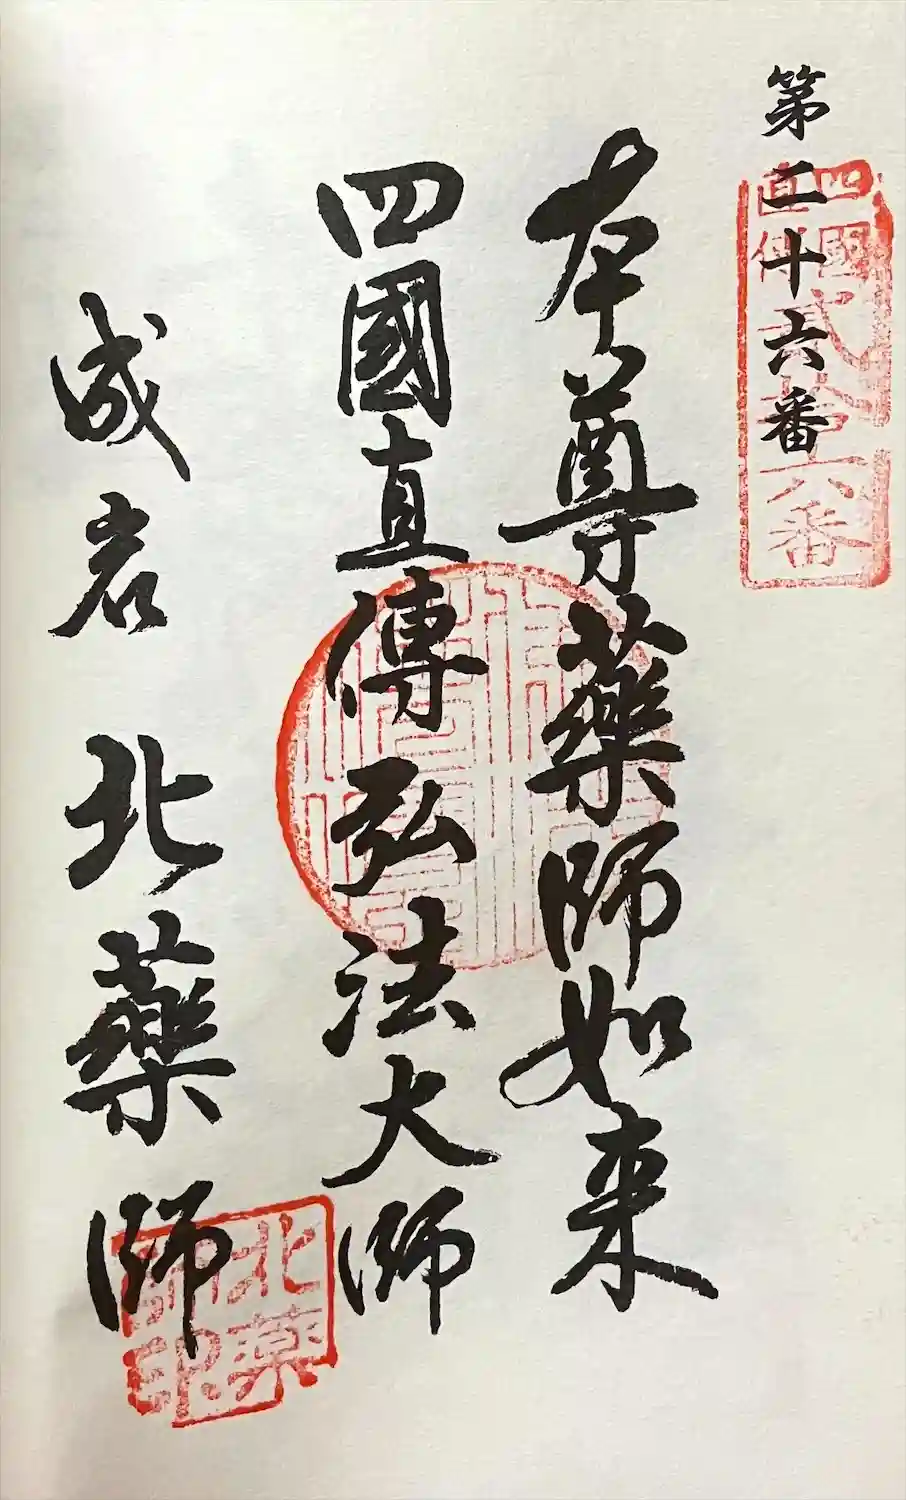 第二十六番
四國
直傳
弐拾六番
本尊薬師如来
四國直傳弘法大師
成岩 北薬師
北薬
師印